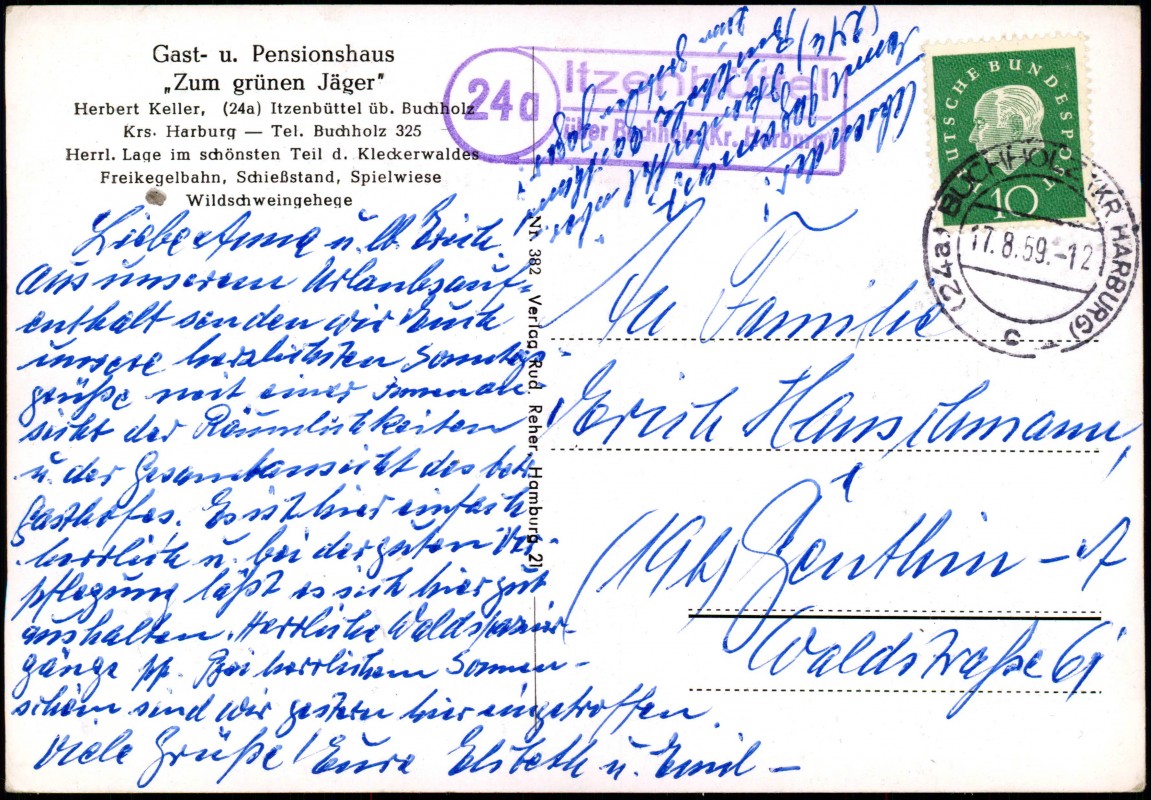 Gast- u. Pensionshaus
„Zum grünen Jäger"
Herbert Keller, (24a) Itzenbüttel üb. Buchholz
Krs. Harburg — Tel. Buchholz 325
Herrl. Lage im schönsten Teil d. Kleckerwaldes
Freikegelbahn, Schießstand, Spielwiese
Wildschweingehege
Liebe Anna u. lb. Erich.
Aus unserem Urlaubsauf-
enthalt senden wir Euch
unsere herzlichsten Sonntags
grüße mit einer Innenan-
sicht der Räumlichkeiten
u. der Gesamtansicht des betr.
Gasthofes. Es ist hier einfach
herrlich u. bei der guten Ver-
pflegung läßt es sich hier gut
aushalten. Herrliche Waldspazier-
gänge pp. Bei herrlichem Sonnen-
schein sind wir gestern hier eingetroffen.
Viele Grüße! Eure Elsbeth u. Emil –
Nr. 382 Verlag Rud. Reher, Hamburg 21
24a
Itzenbüttel
über Buchholz (Kr. Harburg)
Absender
Emil
(24a)
DEUTSCHE BUNDESPOST
10
(24a) BUCHHOLZ (KR. HARBURG)
17.8.59.-12
c
An Familie
Erich Hanschmann,
(19b) Genthin – A
Waldstraße 61